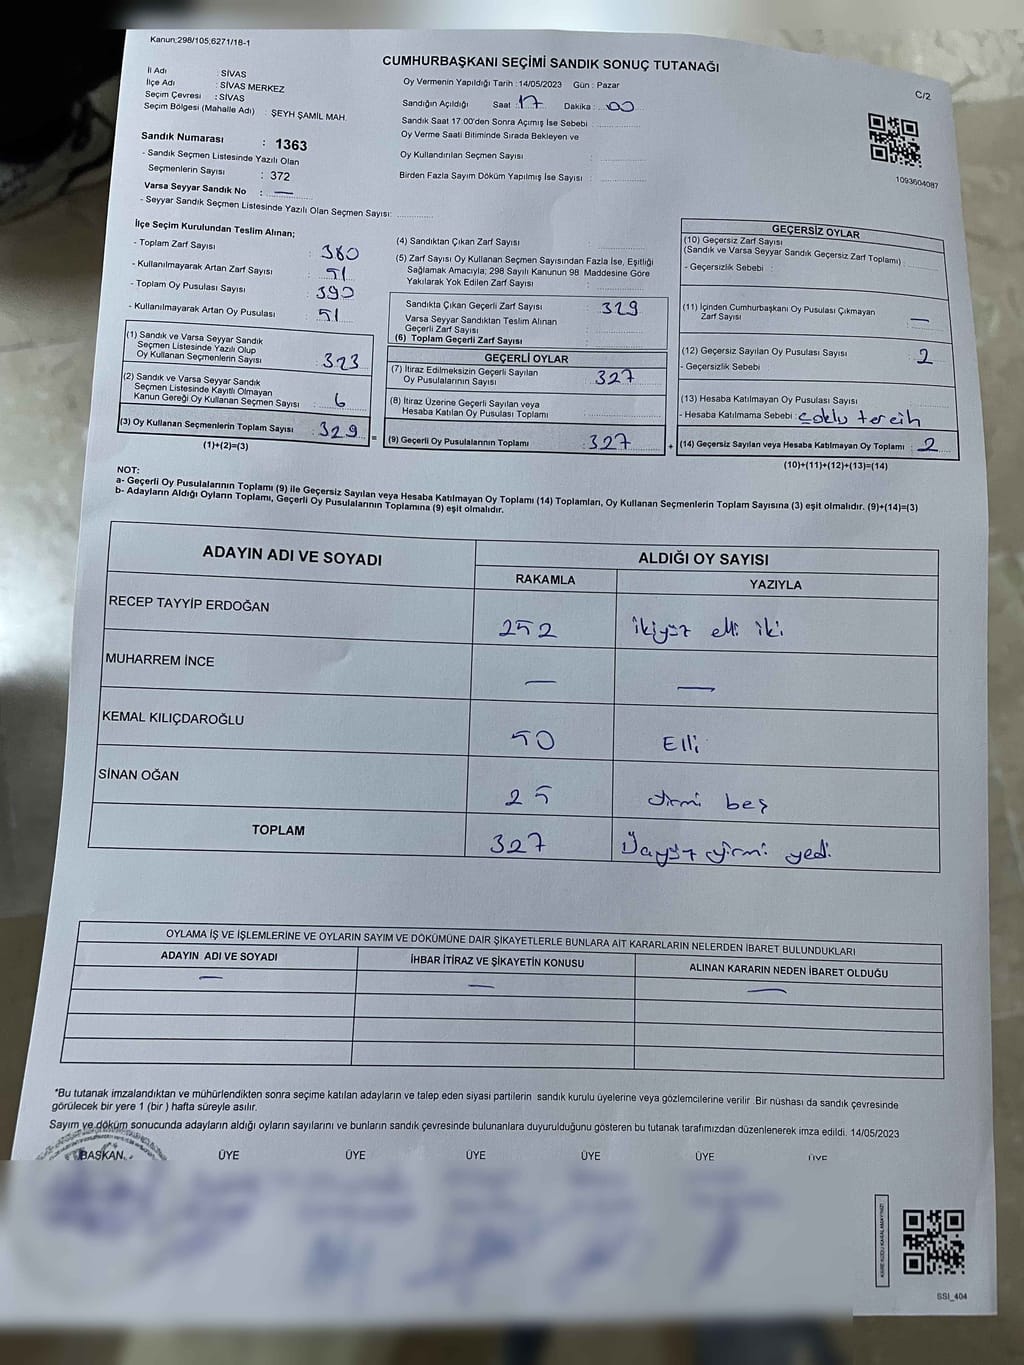 Kanun:298/105,6271/18-1
CUMHURBAŞKANI SEÇİMİ SANDIK SONUÇ TUTANAĞI
C/2
İl Adı : SİVAS
İlçe Adı : SİVAS MERKEZ
Seçim Çevresi : SİVAS
Seçim Bölgesi (Mahalle Adı) : ŞEYH ŞAMİL MAH.
Oy Vermenin Yapıldığı Tarih :14/05/2023 Gün : Pazar
Sandığın Açıldığı Saat : 17 Dakika : 00
Sandık Saat 17.00'den Sonra Açımış İse Sebebi :
Oy Verme Saati Bitiminde Sırada Bekleyen ve
Oy Kullandırılan Seçmen Sayısı :
Birden Fazla Sayım Döküm Yapılmış İse Sayısı :
1093604087
Sandık Numarası : 1363
- Sandık Seçmen Listesinde Yazılı Olan
Seçmenlerin Sayısı : 372
Varsa Seyyar Sandık No : —
- Seyyar Sandık Seçmen Listesinde Yazılı Olan Seçmen Sayısı:
İlçe Seçim Kurulundan Teslim Alınan;
- Toplam Zarf Sayısı : 380
- Kullanılmayarak Artan Zarf Sayısı : 51
- Toplam Oy Pusulası Sayısı : 390
- Kullanılmayarak Artan Oy Pusulası : 51
(1) Sandık ve Varsa Seyyar Sandık
Seçmen Listesinde Yazılı Olup
Oy Kullanan Seçmenlerin Sayısı : 323
(2) Sandık ve Varsa Seyyar Sandık
Seçmen Listesinde Kayıtlı Olmayan
Kanun Gereği Oy Kullanan Seçmen Sayısı : 6
(3) Oy Kullanan Seçmenlerin Toplam Sayısı : 329 =
(1)+(2)=(3)
(4) Sandıktan Çıkan Zarf Sayısı :
(5) Zarf Sayısı Oy Kullanan Seçmen Sayısından Fazla İse, Eşitliği
Sağlamak Amacıyla; 298 Sayılı Kanunun 98 Maddesine Göre
Yakılarak Yok Edilen Zarf Sayısı :
Sandıkta Çıkan Geçerli Zarf Sayısı : 329
Varsa Seyyar Sandıktan Teslim Alınan
Geçerli Zarf Sayısı :
(6) Toplam Geçerli Zarf Sayısı :
GEÇERLİ OYLAR
(7) İtiraz Edilmeksizin Geçerli Sayılan
Oy Pusulalarının Sayısı : 327
(8) İtiraz Üzerine Geçerli Sayılan veya
Hesaba Katılan Oy Pusulası Toplamı :
(9) Geçerli Oy Pusulalarının Toplamı : 327 +
GEÇERSİZ OYLAR
(10) Geçersiz Zarf Sayısı
(Sandık ve Varsa Seyyar Sandık Geçersiz Zarf Toplamı) :
- Geçersizlik Sebebi :
(11) İçinden Cumhurbaşkanı Oy Pusulası Çıkmayan
Zarf Sayısı : —
(12) Geçersiz Sayılan Oy Pusulası Sayısı : 2
- Geçersizlik Sebebi :
(13) Hesaba Katılmayan Oy Pusulası Sayısı :
- Hesaba Katılmama Sebebi : Çoklu tercih
(14) Geçersiz Sayılan veya Hesaba Katılmayan Oy Toplamı : 2
(10)+(11)+(12)+(13)=(14)
NOT:
a- Geçerli Oy Pusulalarının Toplamı (9) ile Geçersiz Sayılan veya Hesaba Katılmayan Oy Toplamı (14) Toplamları, Oy Kullanan Seçmenlerin Toplam Sayısına (3) eşit olmalıdır. (9)+(14)=(3)
b- Adayların Aldığı Oyların Toplamı, Geçerli Oy Pusulalarının Toplamına (9) eşit olmalıdır.
ADAYIN ADI VE SOYADI ALDIĞI OY SAYISI
RAKAMLA YAZIYLA
RECEP TAYYİP ERDOĞAN 252 ikiyüz elli iki
MUHARREM İNCE — —
KEMAL KILIÇDAROĞLU 50 Elli
SİNAN OĞAN 25 yirmi beş
TOPLAM 327 Üçyüz yirmi yedi
OYLAMA İŞ VE İŞLEMLERİNE VE OYLARIN SAYIM VE DÖKÜMÜNE DAİR ŞİKAYETLERLE BUNLARA AİT KARARLARIN NELERDEN İBARET BULUNDUKLARI
ADAYIN ADI VE SOYADI İHBAR İTİRAZ VE ŞİKAYETİN KONUSU ALINAN KARARIN NEDEN İBARET OLDUĞU
— — —
*Bu tutanak imzalandıktan ve mühürlendikten sonra seçime katılan adayların ve talep eden siyasi partilerin sandık kurulu üyelerine veya gözlemcilerine verilir. Bir nüshası da sandık çevresinde
görülecek bir yere 1 (bir ) hafta süreyle asılır.
Sayım ve döküm sonucunda adayların aldığı oyların sayılarını ve bunların sandık çevresinde bulunanlara duyurulduğunu gösteren bu tutanak tarafımızdan düzenlenerek imza edildi. 14/05/2023
BAŞKAN ÜYE ÜYE ÜYE ÜYE ÜYE ÜYE
KARE KODU KARALAMAYINIZ!
SSI_404